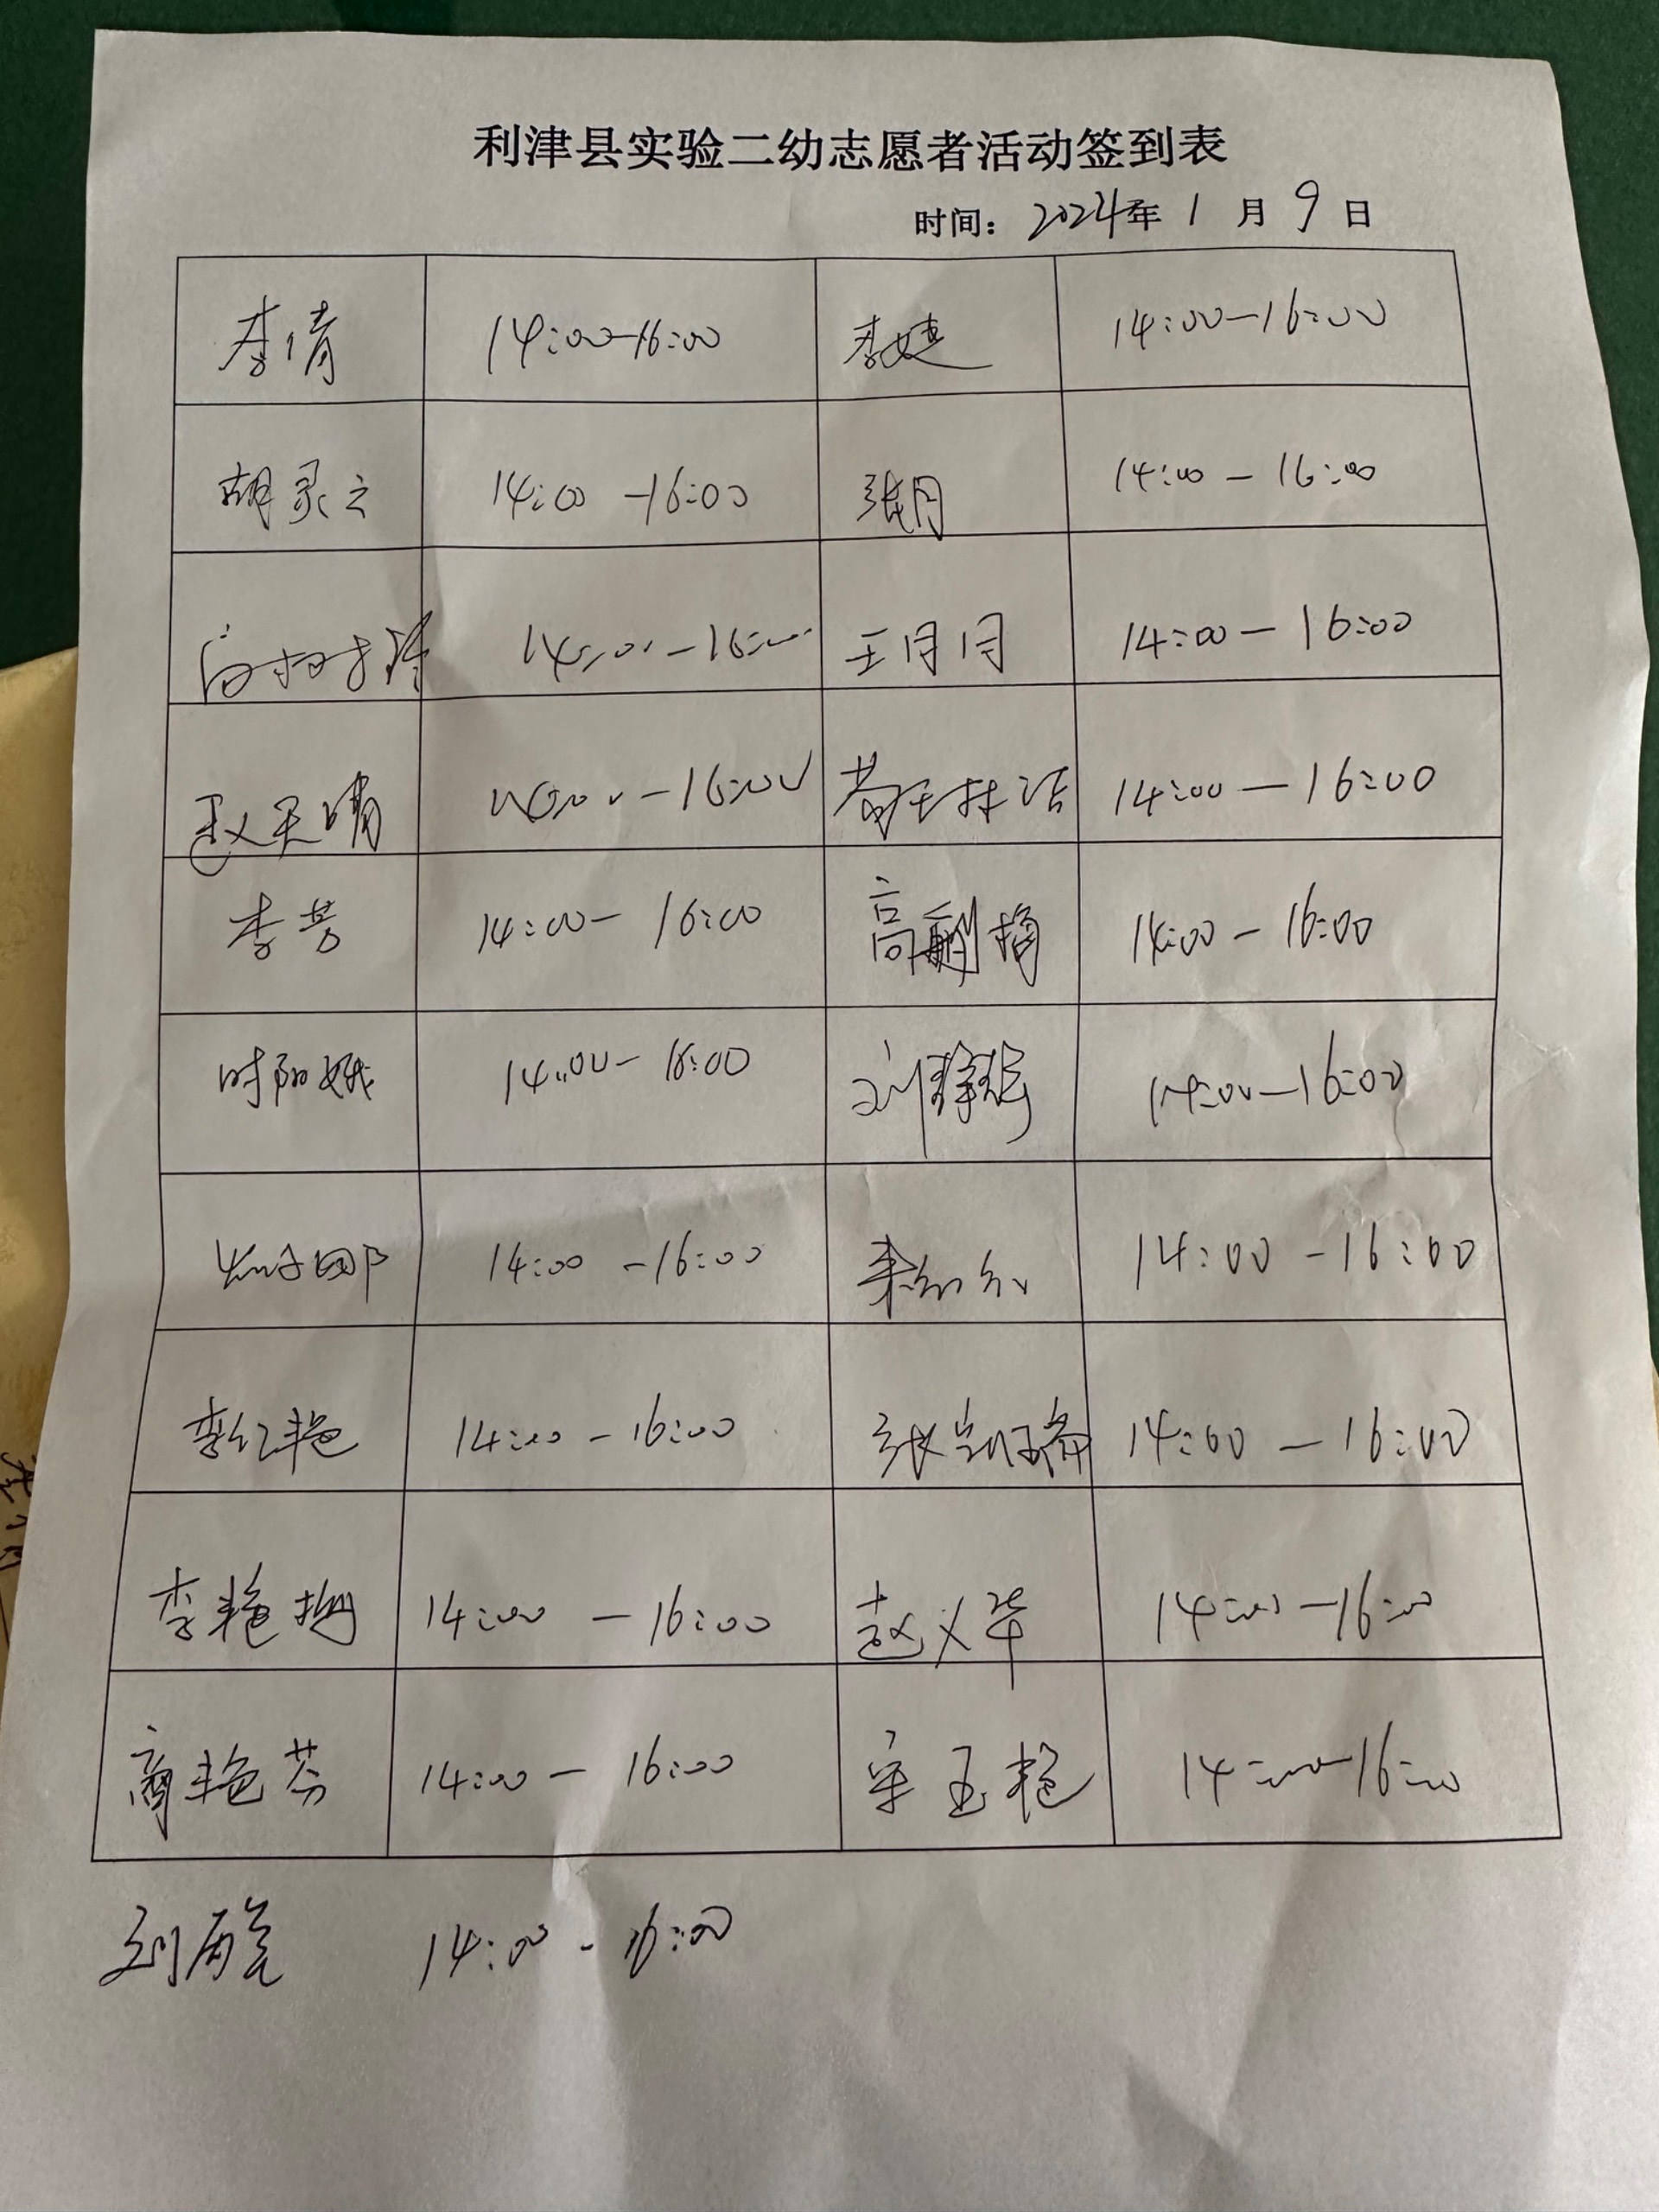 利津县实验二幼志愿者活动签到表
时间：2024年 1 月 9 日
李倩 14:00-16:00 李婕 14:00-16:00
胡灵云 14:00-16:00 张月 14:00-16:00
14:00-16:00 王月月 14:00-16:00
赵天晴 14:00-16:00 14:00-16:00
李芳 14:00-16:00 高 14:00-16:00
时阳娥 14:00-16:00 刘 14:00-16:00
14:00-16:00 14:00-16:00
李红艳 14:00-16:00 张 14:00-16:00
李艳梅 14:00-16:00 赵义华 14:00-16:00
商艳芬 14:00-16:00 宋玉艳 14:00-16:00
刘 14:00-16:00